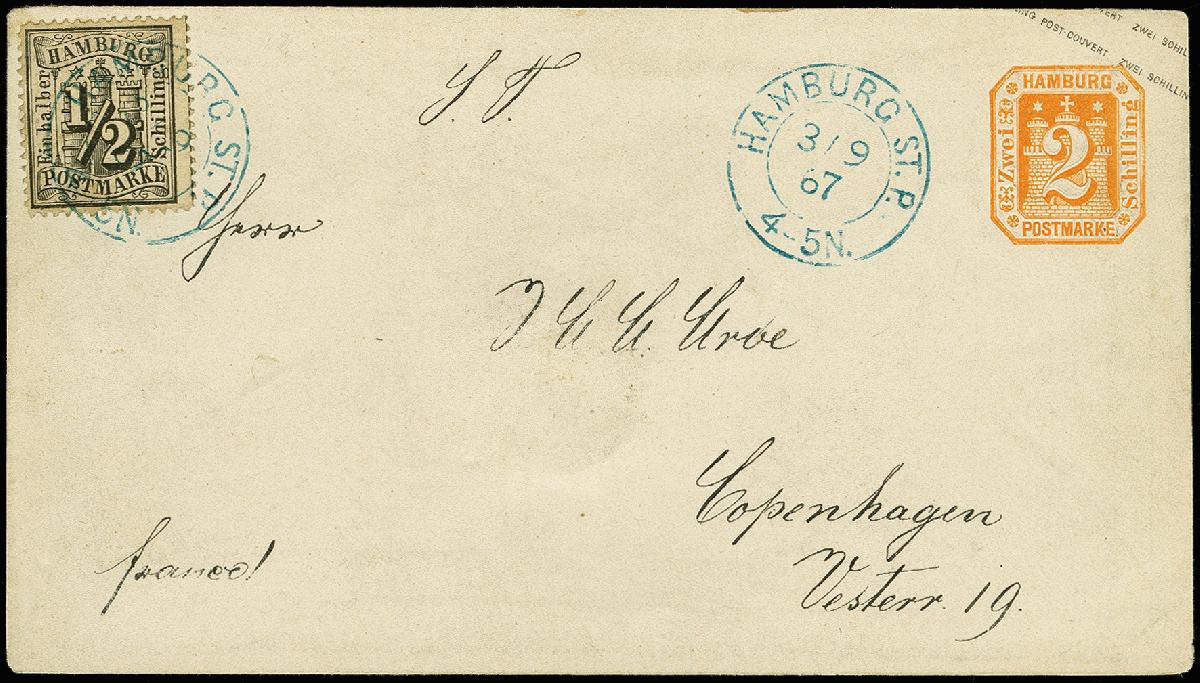 HAMBURG
Ein halber
1/2
Schilling
POSTMARKE
HAMBURG ST. P.
HAMBURG ST. P.
3/9
67
4-5N.
ING POST-COUVERT ZWEI SCHILLIN
VERT ZWEI SCHIL
HAMBURG
Zwei
2
Schilling
POSTMARKE
S. T.
Herr
Copenhagen
Vesterr. 19.
franco!